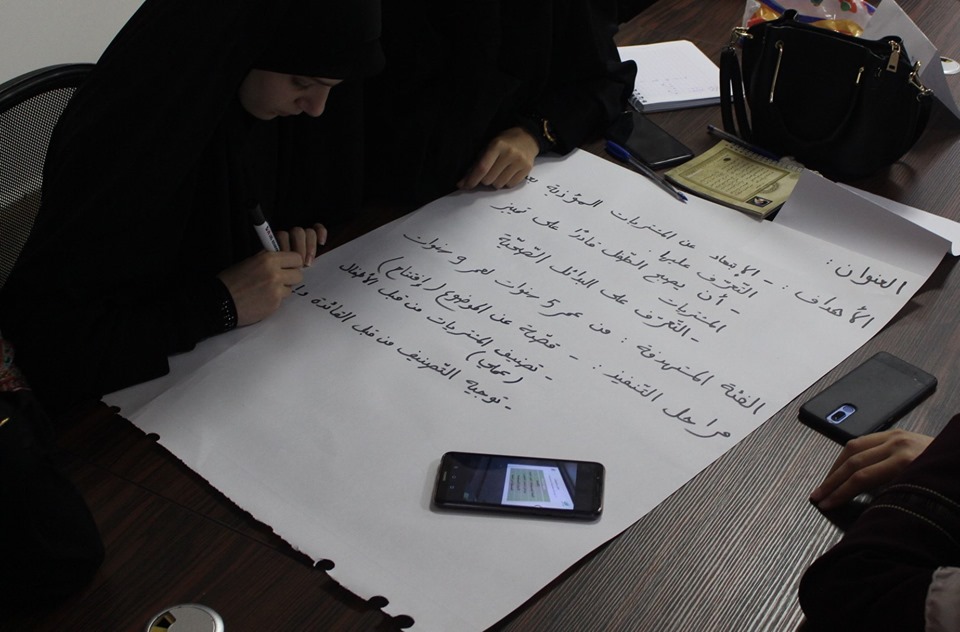 العنوان :
الأهداف : - الابتعاد عن المشتريات المؤذية بعد
التعرف عليها
- أن يصبح الطفل قادرًا على تمييز
المشتريات
- التعرف على البدائل الصحية
الفئة المستهدفة : من عمر 5 سنوات لعمر 9 سنوات
مراحل التنفيذ : - قصة عن الموضوع (افتتاح)
- تصنيف المشتريات من قبل الأطفال
(عملي)
- توجيه التصنيف من قبل